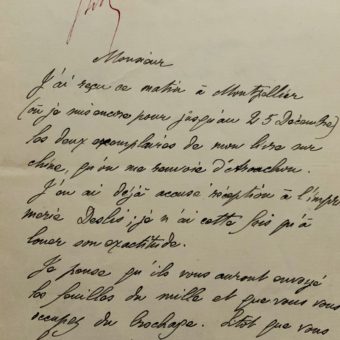 Monsieur
J'ai reçu ce matin à Montpellier
(où je suis encore pour jusqu'au 25 Décembre)
les deux exemplaires de mon livre sur
chine, qu'on me renvoie d'Arcachon.
J'en ai déjà accusé réception à l'impri
merie Deslis; je n'ai cette fois qu'à
louer son exactitude.
Je pense qu'ils vous auront envoyé
les feuilles du mille et que vous vous
occupez du brochage. Sitôt que vous